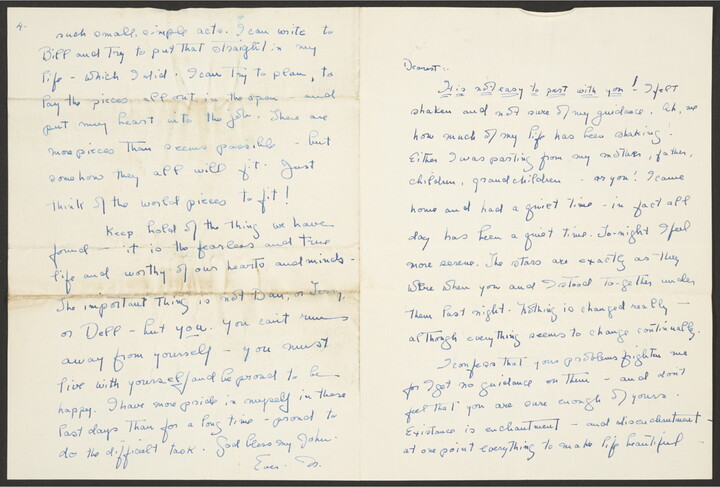 4.
such small, simple acts. I can write to
Bill and try to put that straight in my
life - which I did. I can try to plan, to
lay the pieces all out in the open and
put my heart into the job. There are
more pieces than seems possible - but
somehow they all will fit. Just
think of the world pieces to fit!
Keep hold of the thing we have
found - it is the fearless and true
life and worthy of our hearts and minds -
The important thing is not Dan, or Terry,
or Dell - but you. You can't run
away from yourself - you must
live with yourself and be proud to be
happy. I have more pride in myself in these
last days than for a long time - proud to
do the difficult task. God bless my John.
Ever.
Dearest:
It is not easy to part with you! I felt
shaken and not sure of my guidance. Ah, me
how much of my life has been shaking.
Either I was parting from my mother, father,
children, grandchildren - or you! I came
home and had a quiet time - in fact all
day has been a quiet time. To-night I feel
more serene. The stars are exactly as they
were when you and I stood to-gether under
them last night. Nothing is changed really -
although everything seems to change continually.
I confess that your problems frighten me
for I get no guidance on them - and don't
feel that you are sure enough of yours.
Existence is enchantment - and disenchantment -
at one point everything to make life beautiful -